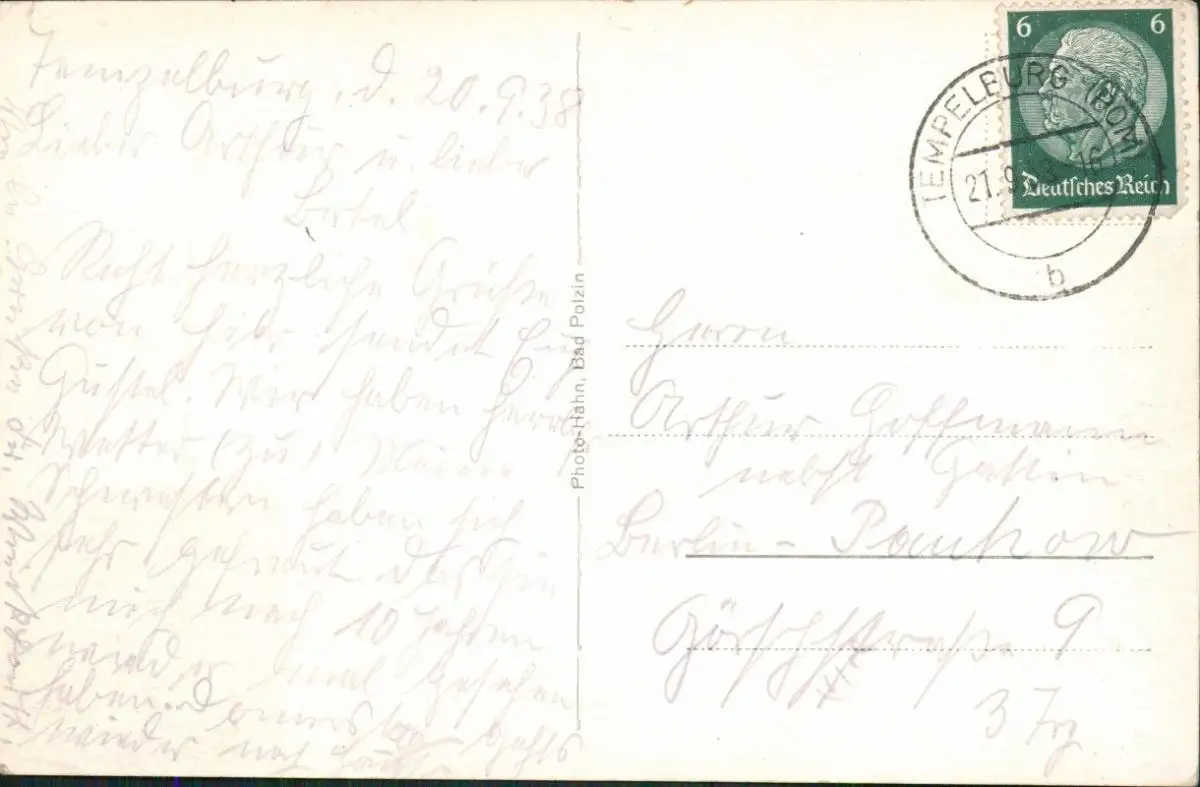 Tempelburg, d. 20.9.38
Lieber Arthur u. liebe
Betel
Recht herzliche Grüße
von hier sendet Euch
Gustel. Wir haben herrl.
Wetter
Schwestern haben sich
sehr gefreut das sie
mich nach 10 Jahren
wieder mal gesehen
haben. Donnerstag gehts
wieder nach Hause
Photo-Hahn, Bad Polzin
6 6
Deutsches Reich
TEMPELBURG (POM)
21.9.38 16
b
Herrn
Arthur Hoffmann
nebst Gattin
Berlin - Pankow
Görschstraße 9
3 Trp